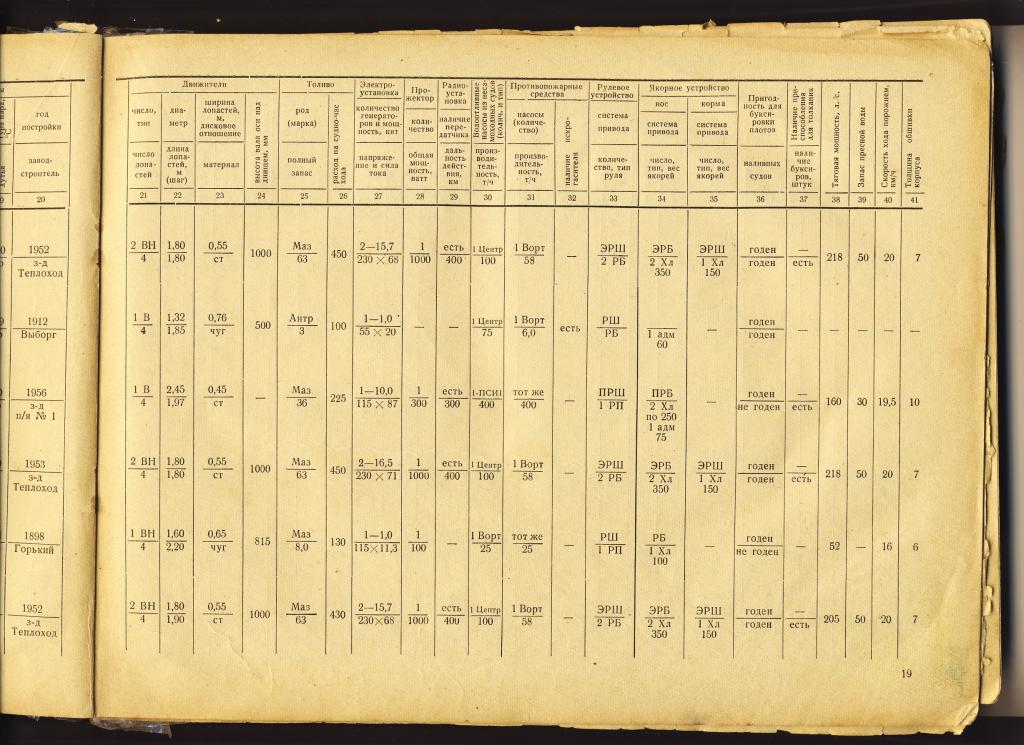 год
постройки
завод-
строитель
20
1952
з-д
Теплоход
1912
Выборг
1956
з-д
п/я № 1
1953
з-д
Теплоход
1898
Горький
1952
з-д
Теплоход
Движители Топливо Электро-установка Про-жектор Радио-установка Водоотливные насосы из неса-моходных судов (колич. и тип) Противопожарные средства Рулевое устройство Якорное устройство Пригод-ность для букси-ровки плотов Наличие при-способления для толкания Тяговая мощность, л. с. Запас пресной воды Скорость хода порожнем, км/ч Толщина обшивки корпуса
число, тип диа-метр ширина лопастей, м, дисковое отношение высота вала оси над днищем, мм род (марка) расход на судно-час хода количество генерато-ров и мощ-ность, квт коли-чество наличие пере-датчика насосы (количе-ство) наличие искро-гасителя система привода нос система привода корма система привода
число лопа-стей длина лопа-стей, м (шаг) материал полный запас напряже-ние и сила тока общая мощ-ность, ватт даль-ность дейст-вия, км произ-води-тель-ность, т/ч произво-дитель-ность, т/ч количе-ство, тип руля число, тип, вес якорей число, тип, вес якорей наливных судов нали-чие букси-ров, штук
21 22 23 24 25 26 27 28 29 30 31 32 33 34 35 36 37 38 39 40 41
2 ВН 1,80 0,55 1000 Маз 450 2—15,7 1 есть 1 Центр 1 Ворт — ЭРШ ЭРБ ЭРШ годен — 218 50 20 7
4 1,80 ст 63 230 × 68 1000 400 100 58 2 РБ 2 Хл 1 Хл годен есть
350 150
1 В 1,32 0,76 500 Антр 100 1—1,0 — — 1 Центр 1 Ворт есть РШ — годен — — — — —
4 1,85 чуг 3 55 × 20 75 6,0 РБ 1 адм годен
60
1 В 2,45 0,45 — Маз 225 1—10,0 1 есть 1-ПСИ1 тот же — ПРШ ПРБ — годен — 160 30 19,5 10
4 1,97 ст 36 115 × 87 300 300 400 400 1 РП 2 Хл не годен есть
по 250
1 адм
75
2 ВН 1,80 0,55 1000 Маз 450 2—16,5 1 есть 1 Центр 1 Ворт — ЭРШ ЭРБ ЭРШ годен — 218 50 20 7
4 1,80 ст 63 230 × 71 1000 400 100 58 2 РБ 2 Хл 1 Хл годен есть
350 150
1 ВН 1,60 0,65 815 Маз 130 1—1,0 1 — 1 Ворт тот же — РШ РБ — годен — 52 — 16 6
4 2,20 чуг 8,0 115×11,3 100 25 25 1 РП 1 Хл не годен
100
2 ВН 1,80 0,55 1000 Маз 430 2—15,7 1 есть 1 Центр 1 Ворт — ЭРШ ЭРБ ЭРШ годен — 205 50 20 7
4 1,90 ст 63 230×68 1000 400 100 58 2 РБ 2 Хл 1 Хл годен есть
350 150
19